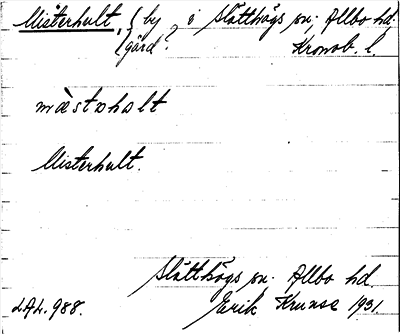 Misterhult, { by
gård. } i Slätthögs sn; Allbo hd.
Kronob. l.
mæ̀stəhəlt
Misterhult.
Slätthögs sn. Allbo hd.
LAL. 988. Erik Kruuse 1931.